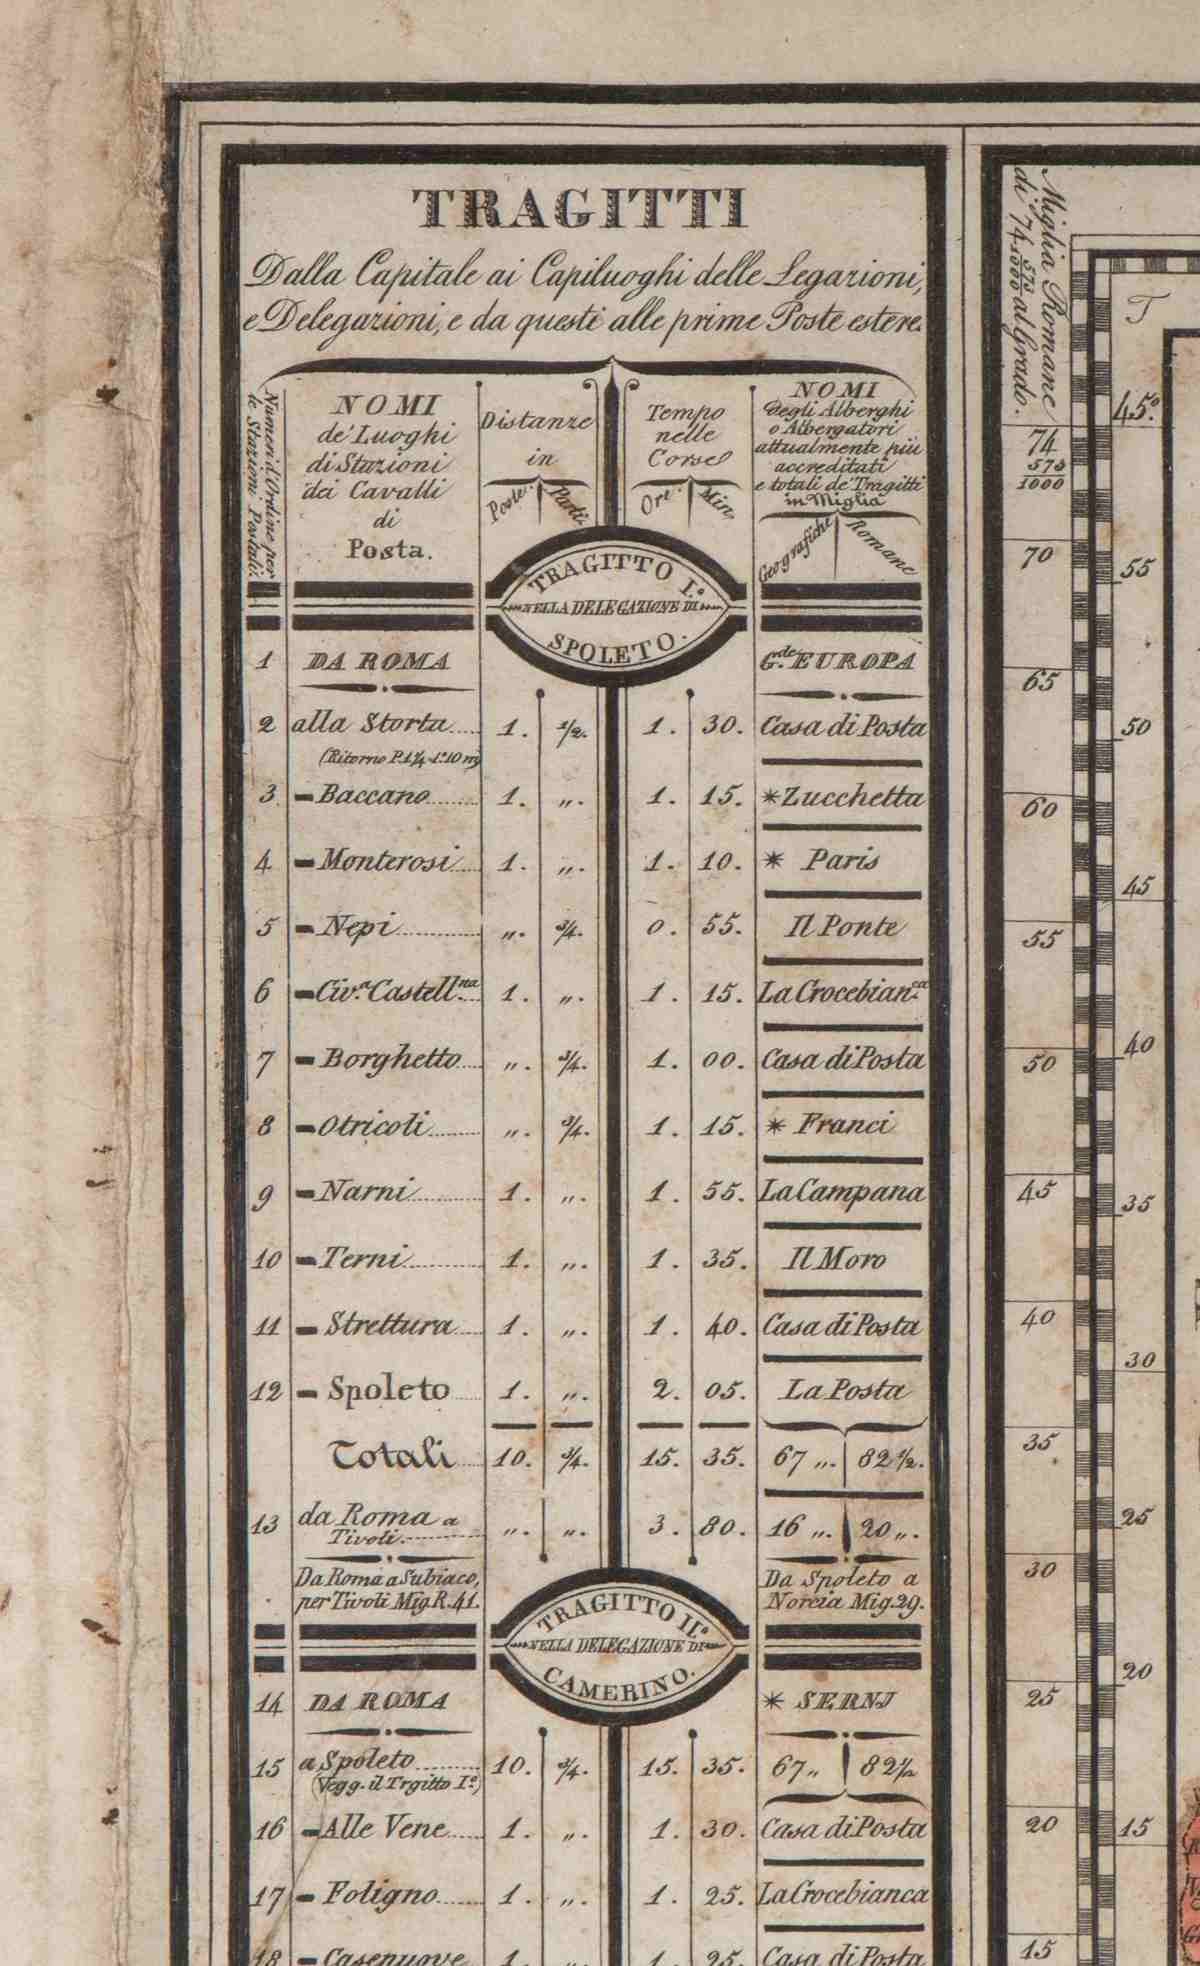 TRAGITTI
Dalla Capitale ai Capiluoghi delle Legazioni,
e Delegazioni, e da questi alle prime Poste estere.
Numeri d'Ordine per
le Stazioni Postali.
NOMI
de' Luoghi
di Stazioni
dei Cavalli
di
Posta.
Distanze
in
Poste. Parti.
Tempo
nelle
Corse
Ore. Min.
NOMI
degli Alberghi
o Albergatori
attualmente più
accreditati
e totali de' Tragitti
in Miglia
Geografiche Romane
TRAGITTO I.º
NELLA DELEGAZIONE DI
SPOLETO.
1 DA ROMA G.de EUROPA
2 alla Storta 1. 1/2. 1. 30. Casa di Posta
(Ritorno P. 1 1/4 1.º 10 m)
3. - Baccano 1. „. 1. 15. *Zucchetta
4 - Monterosi 1. „. 1. 10. * Paris
5 - Nepi „. 3/4. 0. 55. Il Ponte
6 - Civ.a Castell.na 1. „. 1. 15. La Crocebian.ca
7 - Borghetto „. 3/4. 1. 00. Casa di Posta
8 - Otricoli „. 3/4. 1. 15. * Franci
9 - Narni 1. „. 1. 55. La Campana
10 - Terni 1. „. 1. 35. Il Moro
11 - Strettura 1. „. 1. 40. Casa di Posta
12 - Spoleto 1. „. 2. 05. La Posta
Totali 10. 3/4. 15. 35. 67 „. 82 1/2.
13 da Roma a
Tivoli. „. „. 3. 80. 16 „. 20 „.
Da Roma a Subiaco,
per Tivoli Mig. R. 41.
Da Spoleto a
Norcia Mig. 29.
TRAGITTO II.º
NELLA DELEGAZIONE DI
CAMERINO.
14 DA ROMA * SERNJ
15 a Spoleto 10. 3/4. 15. 35. 67 „ 82 1/2
(Vegg. il Trgitto I.º)
16 - Alle Vene 1. „. 1. 30. Casa di Posta
17 - Foligno 1. „. 1. 25. La Crocebianca
18 - Casenuove 1. „. 1. 25. Casa di Posta
Miglia Romane
di 74 573/1000 al Grado.
T
45º
74
573
1000
70
65
60
55
50
45
40
35
30
25
20
15
55
50
45
40
35
30
25
20
15